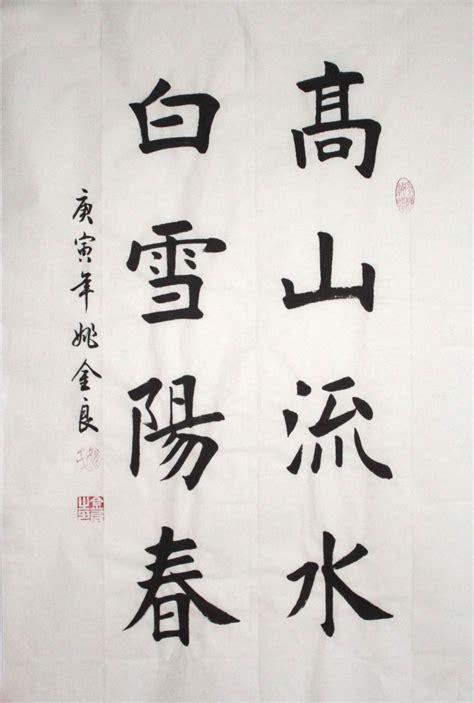 髙山流水
白雪陽春
庚寅年姚金良